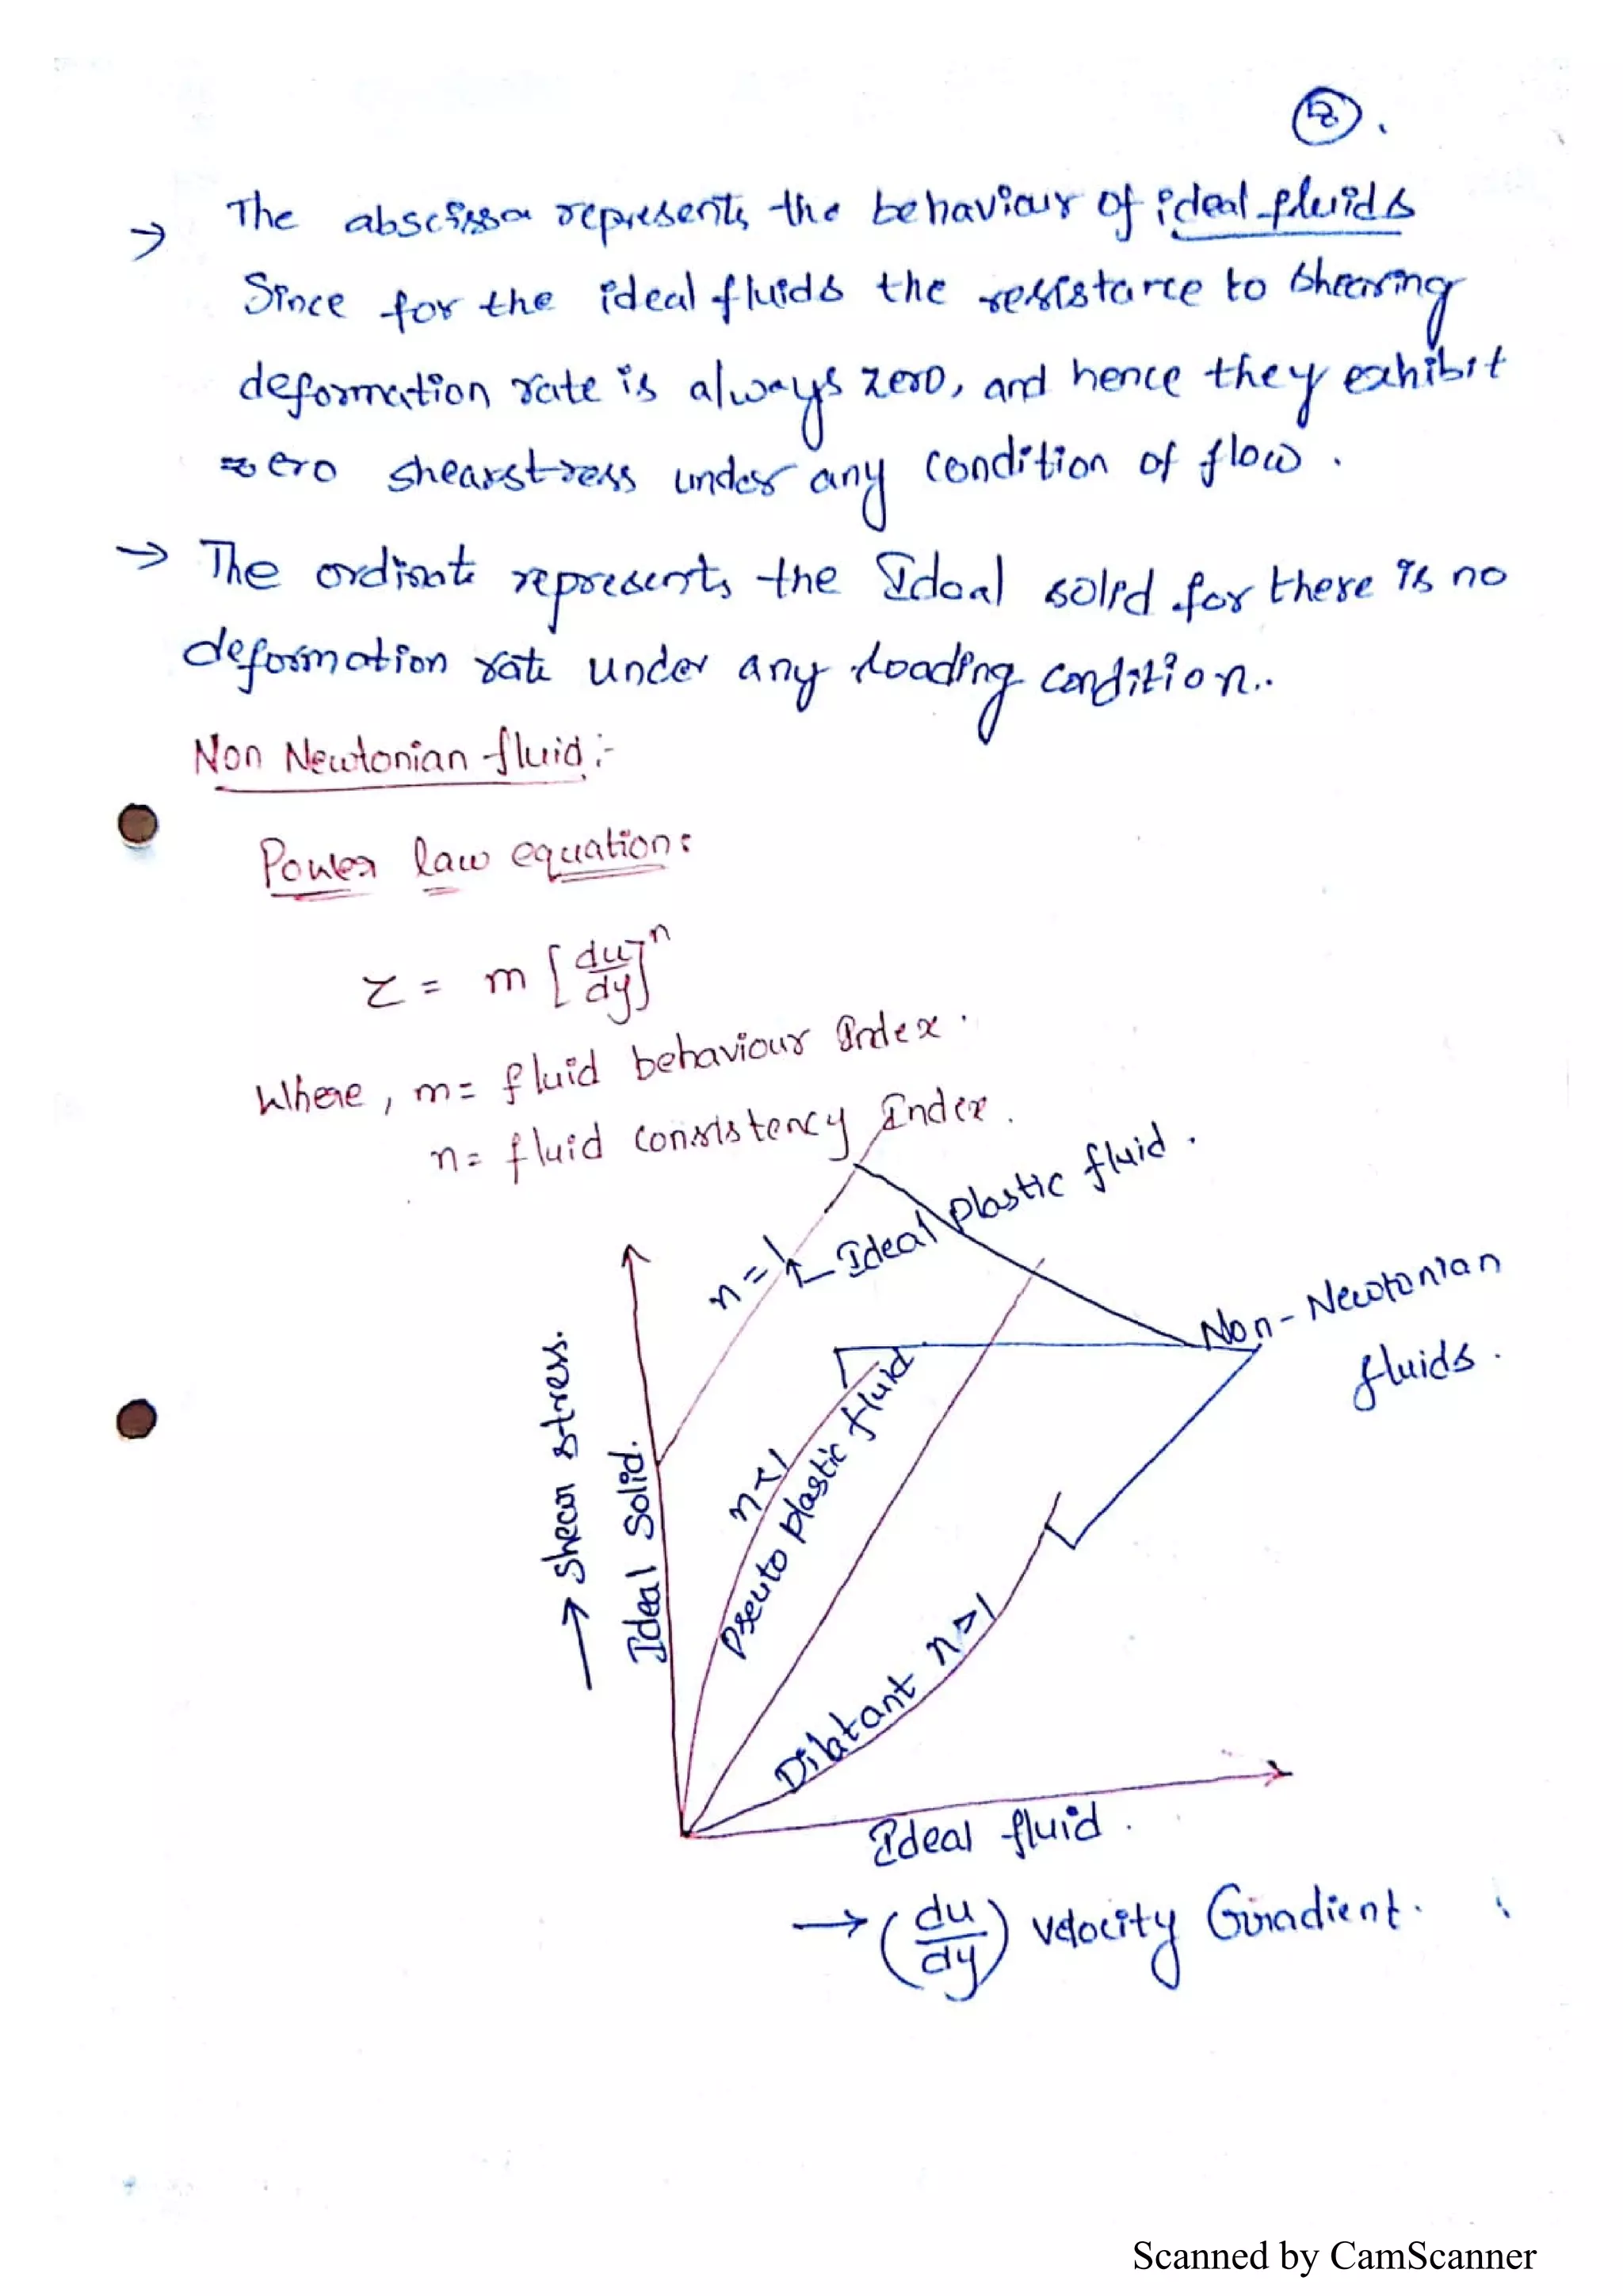 2.
→ The abscissa represents the behaviour of ideal fluids
Since for the ideal fluids the resistance to shearing
deformation rate is always zero, and hence they exhibit
zero shearstress under any condition of flow.
→ The ordinate represents the Ideal solid for there is no
deformation rate under any loading condition..
Non Newtonian fluid:-
Power law equation:
τ = m [du/dy]ⁿ
Where, m= fluid behaviour Index.
n= fluid consistency Index.
n=1
Ideal plastic fluid.
Non-Newtonian
fluids.
→ Shear stress.
Ideal Solid.
n<1
Pseuto plastic fluid
Dilatant n>1
Ideal fluid.
→ (du/dy) velocity Gradient.
Scanned by CamScanner